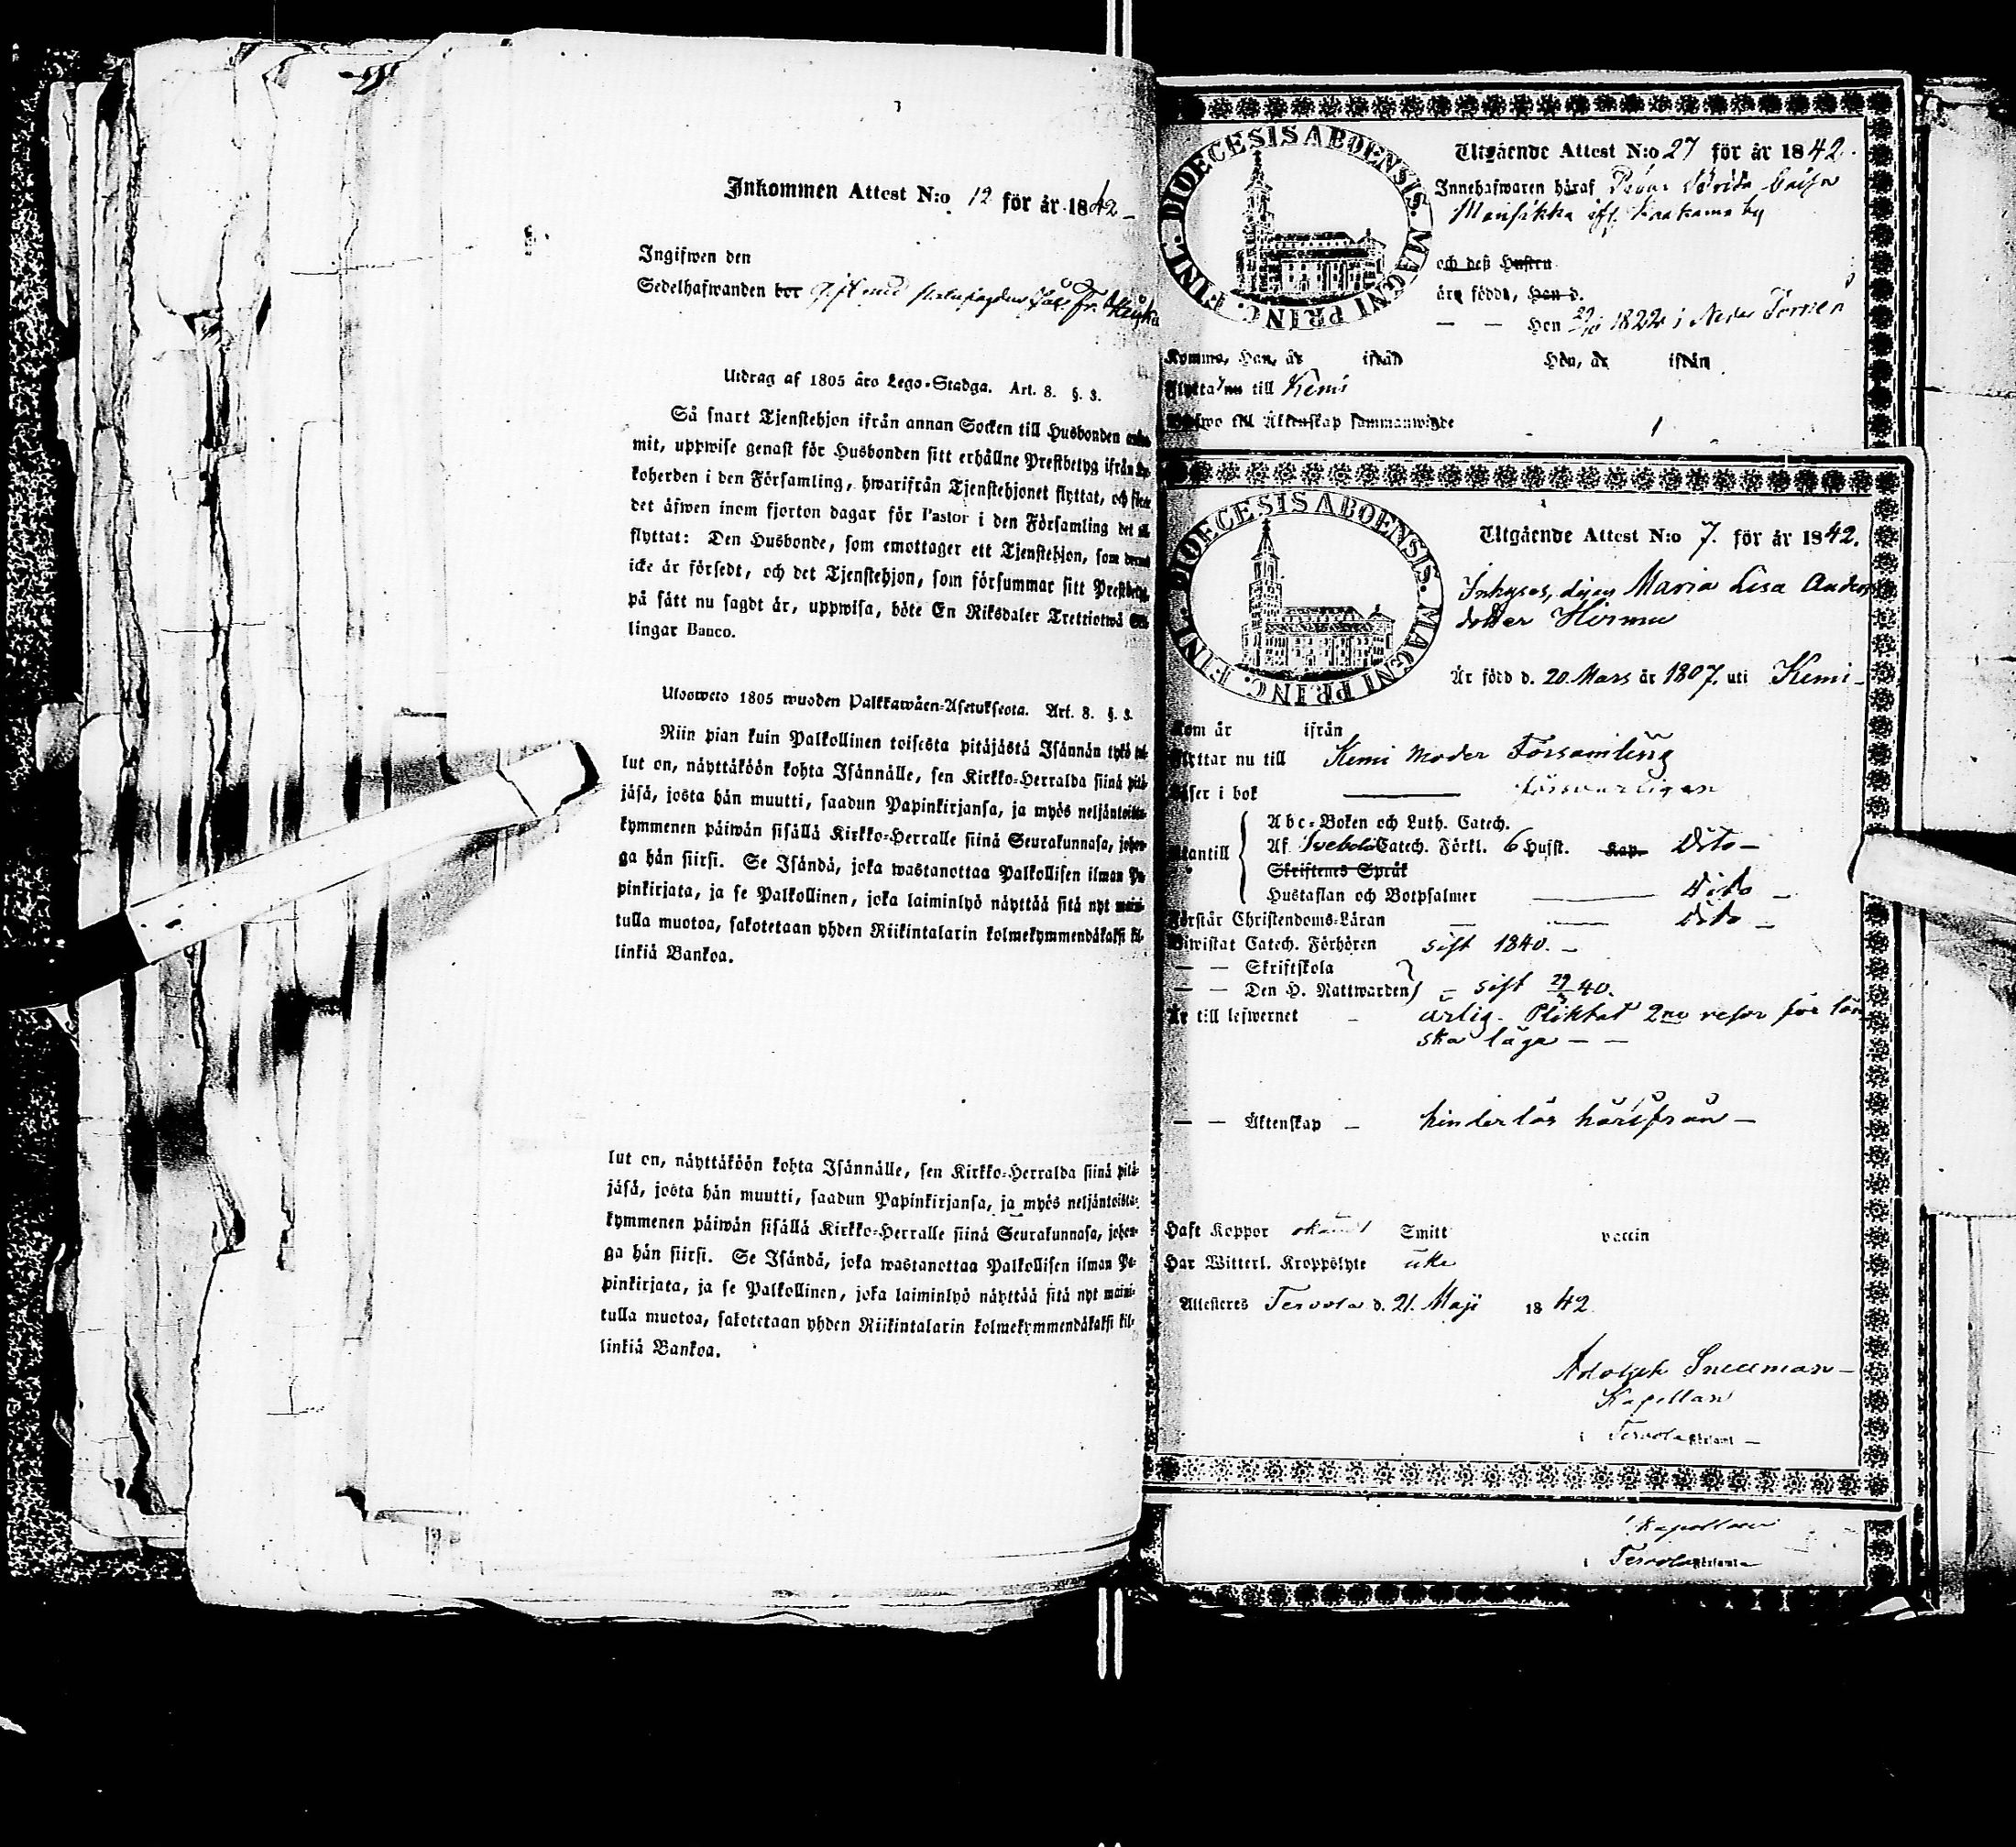 Inkommen Attest N:o 12 för år 1842
Ingifwen den
Sedelhafwanden bor gift med
Utdrag af 1805 års Lego-Stadga. Art. 8. §. 3.
Så snart Tjenstehjon ifrån annan Socken till Husbonden
mit, uppwise genast för Husbonden sitt erhållne Prestbetyg ifrån
koherden i den Församling, hwarifrån Tjenstehjonet flyttat, och
det äfwen inom fjorton dagar för Pastor i den Församling det
flyttat: Den Husbonde, som emottager ett Tjenstehjon, som
icke är försedt, och det Tjenstehjon, som försummar sitt Prestbetyg,
på sätt nu sagdt är, uppwisa, böte En Riksdaler Trettiotwå
lingar Banco.
Ulosweto 1805 wuoden Palkkawäen-Asetuksesta. Art. 8. §. 3.
Niin pian kuin Palkollinen toisesta pitäjästä Isännän tykö
lut on, näyttäköön kohta Isännälle, sen Kirkko-Herralda siinä pitä-
jäsä, josta hän muutti, saadun Papinkirjansa, ja myös neljäntoista-
kymmenen päiwän sisällä Kirkko-Herralle siinä Seurakunnasa, johon-
ga hän siirsi. Se Isändä, joka wastanottaa Palkollisen ilman Pa-
pinkirjata, ja se Palkollinen, joka laiminlyö näyttää sitä nyt maini-
tulla muotoa, sakotetaan yhden Riikintalarin kolmekymmendäkaksi kil-
linkiä Bankoa.
lut on, näyttäköön kohta Isännälle, sen Kirkko-Herralda siinä pitä-
jäsä, josta hän muutti, saadun Papinkirjansa, ja myös neljäntoista-
kymmenen päiwän sisällä Kirkko-Herralle siinä Seurakunnasa, johon-
ga hän siirsi. Se Isändä, joka wastanottaa Palkollisen ilman Pa-
pinkirjata, ja se Palkollinen, joka laiminlyö näyttää sitä nyt maini-
tulla muotoa, sakotetaan yhden Riikintalarin kolmekymmendäkaksi kil-
linkiä Bankoa.
DIOECESIS ABOENSIS. MAGNI PRINC. FINL.
Utgående Attest N:o 27 för år 1842.
Innehafwaren häraf Caisa
Mansikka ifr. Kaakama by
och deß Hustru
äro födde, Han d.
— — Hon 1822 i Neder Torneå
Komme, Han, år ifrån Hon, år ifrån
Flytta nu till Kemi
till Äktenskap sammanwigde
DIOECESIS ABOENSIS. MAGNI PRINC. FINL.
Utgående Attest N:o 7. för år 1842.
Inhyses, Maria Lisa Anders
dotter Hirmu
Är född d. 20 Mars år 1807. uti Kemi
Kom år ifrån
Flyttar nu till Kemi Moder Församling
Läser i bok försvarligen
Abc-Boken och Luth. Catech.
Utantill Af Svebelii Catech. Förkl. 6 Hufst. Kap. Dito
Skriftenes Språk
Hustaflan och Botpsalmer Dito
Förstår Christendoms-Läran Dito
Biwistat Catech. Förhören sist 1840.
— — Skriftskola
— — Den H. Nattwarden sist 29/3 40.
Är till lefwernet ärlig. Pliktat 2ne resor för lön
ska läge
— — Äktenskap hinderlös härifrån
Haft Koppor Smitt vaccin
Har Witterl. Kroppslyte icke
Attesteres Tervola d. 21. Maji 1842
Adolph Snellman
Kapellan
i Tervola
Kapellan
i Tervola